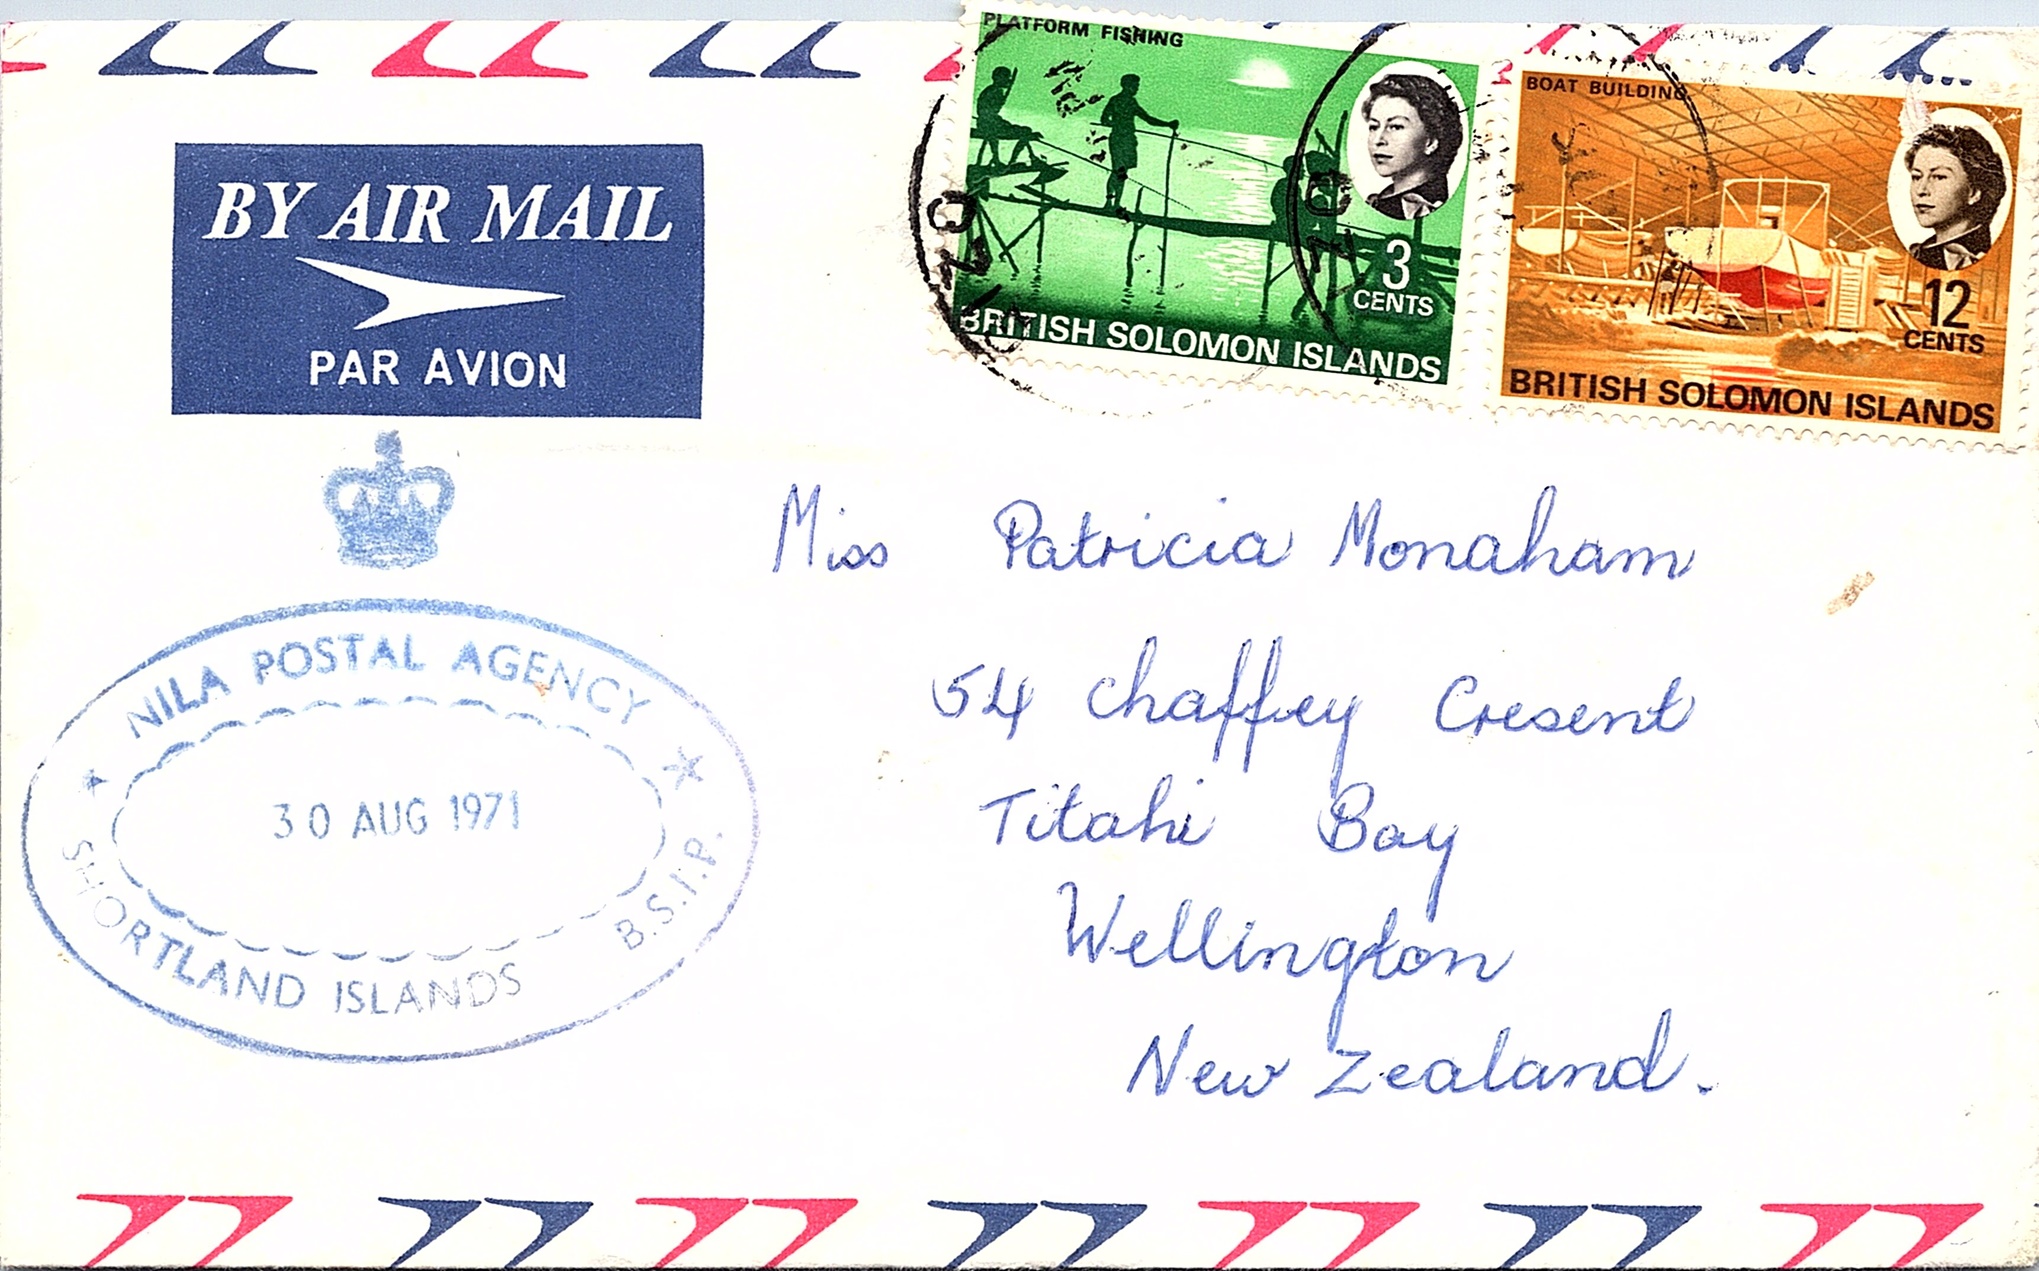 BY AIR MAIL
PAR AVION
PLATFORM FISHING
3
CENTS
BRITISH SOLOMON ISLANDS
BOAT BUILDING
12
CENTS
BRITISH SOLOMON ISLANDS
NILA POSTAL AGENCY
30 AUG 1971
SHORTLAND ISLANDS B.S.I.P.
Miss Patricia Monaham
54 Chaffey Cresent
Titahi Bay
Wellington
New Zealand.